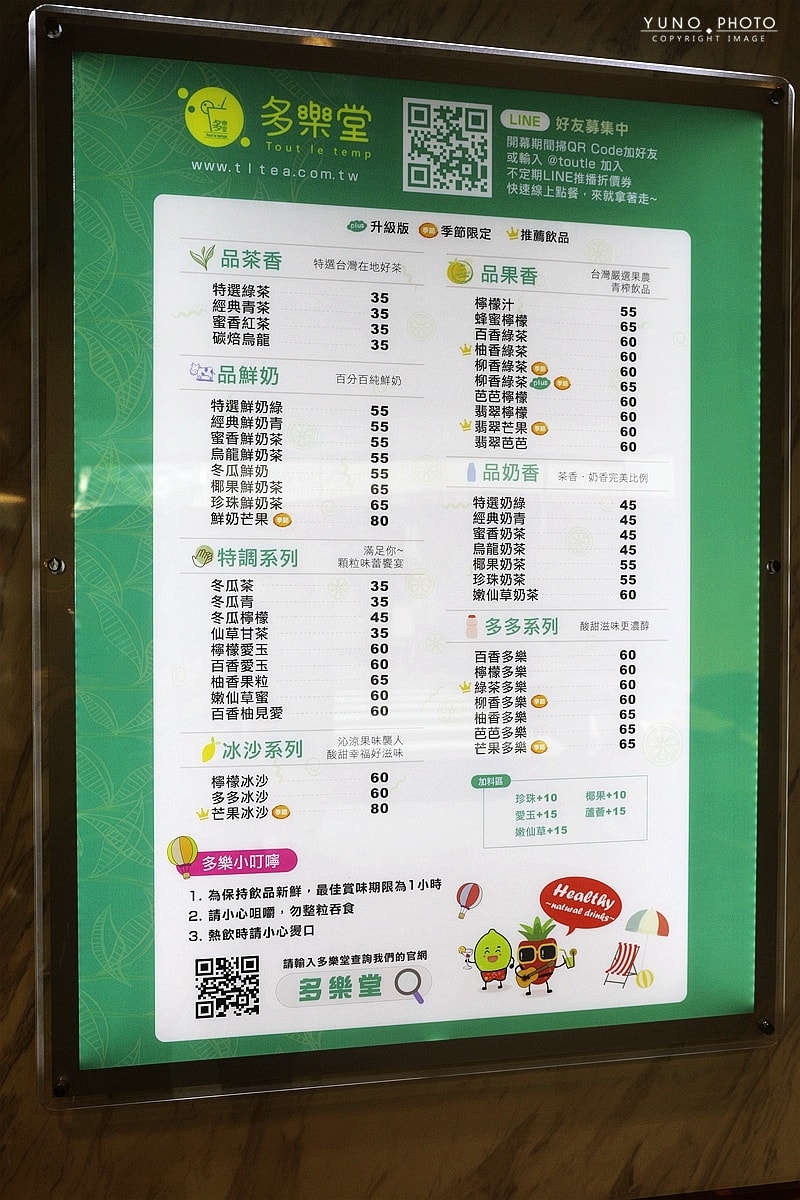 YUNO PHOTO
COPYRIGHT IMAGE
多樂堂
Tout le temp
www.tltea.com.tw
LINE 好友募集中
開幕期間掃QR Code加好友
或輸入 @toutle 加入
不定期LINE推播折價券
快速線上點餐，來就拿著走~
plus 升級版 季節 季節限定 推薦飲品
品茶香 特選台灣在地好茶
特選綠茶 35
經典青茶 35
蜜香紅茶 35
碳焙烏龍 35
品鮮奶 百分百純鮮奶
特選鮮奶綠 55
經典鮮奶青 55
蜜香鮮奶茶 55
烏龍鮮奶茶 55
冬瓜鮮奶 55
椰果鮮奶茶 65
珍珠鮮奶茶 65
鮮奶芒果 季節 80
特調系列 滿足你~
顆粒味蕾饗宴
冬瓜茶 35
冬瓜青 35
冬瓜檸檬 45
仙草甘茶 35
檸檬愛玉 60
百香愛玉 60
柚香果粒 65
嫩仙草蜜 60
百香柚見愛 60
冰沙系列 沁涼果味襲人
酸甜幸福好滋味
檸檬冰沙 60
多多冰沙 60
芒果冰沙 季節 80
品果香 台灣嚴選果農
青榨飲品
檸檬汁 55
蜂蜜檸檬 65
百香綠茶 60
柚香綠茶 60
柳香綠茶 季節 60
柳香綠茶 plus 季節 65
芭芭檸檬 60
翡翠檸檬 60
翡翠芒果 季節 60
翡翠芭芭 60
品奶香 茶香．奶香完美比例
特選奶綠 45
經典奶青 45
蜜香奶茶 45
烏龍奶茶 45
椰果奶茶 55
珍珠奶茶 55
嫩仙草奶茶 60
多多系列 酸甜滋味更濃醇
百香多樂 60
檸檬多樂 60
綠茶多樂 60
柳香多樂 季節 60
柚香多樂 65
芭芭多樂 65
芒果多樂 季節 65
加料區
珍珠+10 椰果+10
愛玉+15 蘆薈+15
嫩仙草+15
多樂小叮嚀
1. 為保持飲品新鮮，最佳賞味期限為1小時
2. 請小心咀嚼，勿整粒吞食
3. 熱飲時請小心燙口
請輸入多樂堂查詢我們的官網
多樂堂
Healthy
~natural drinks~